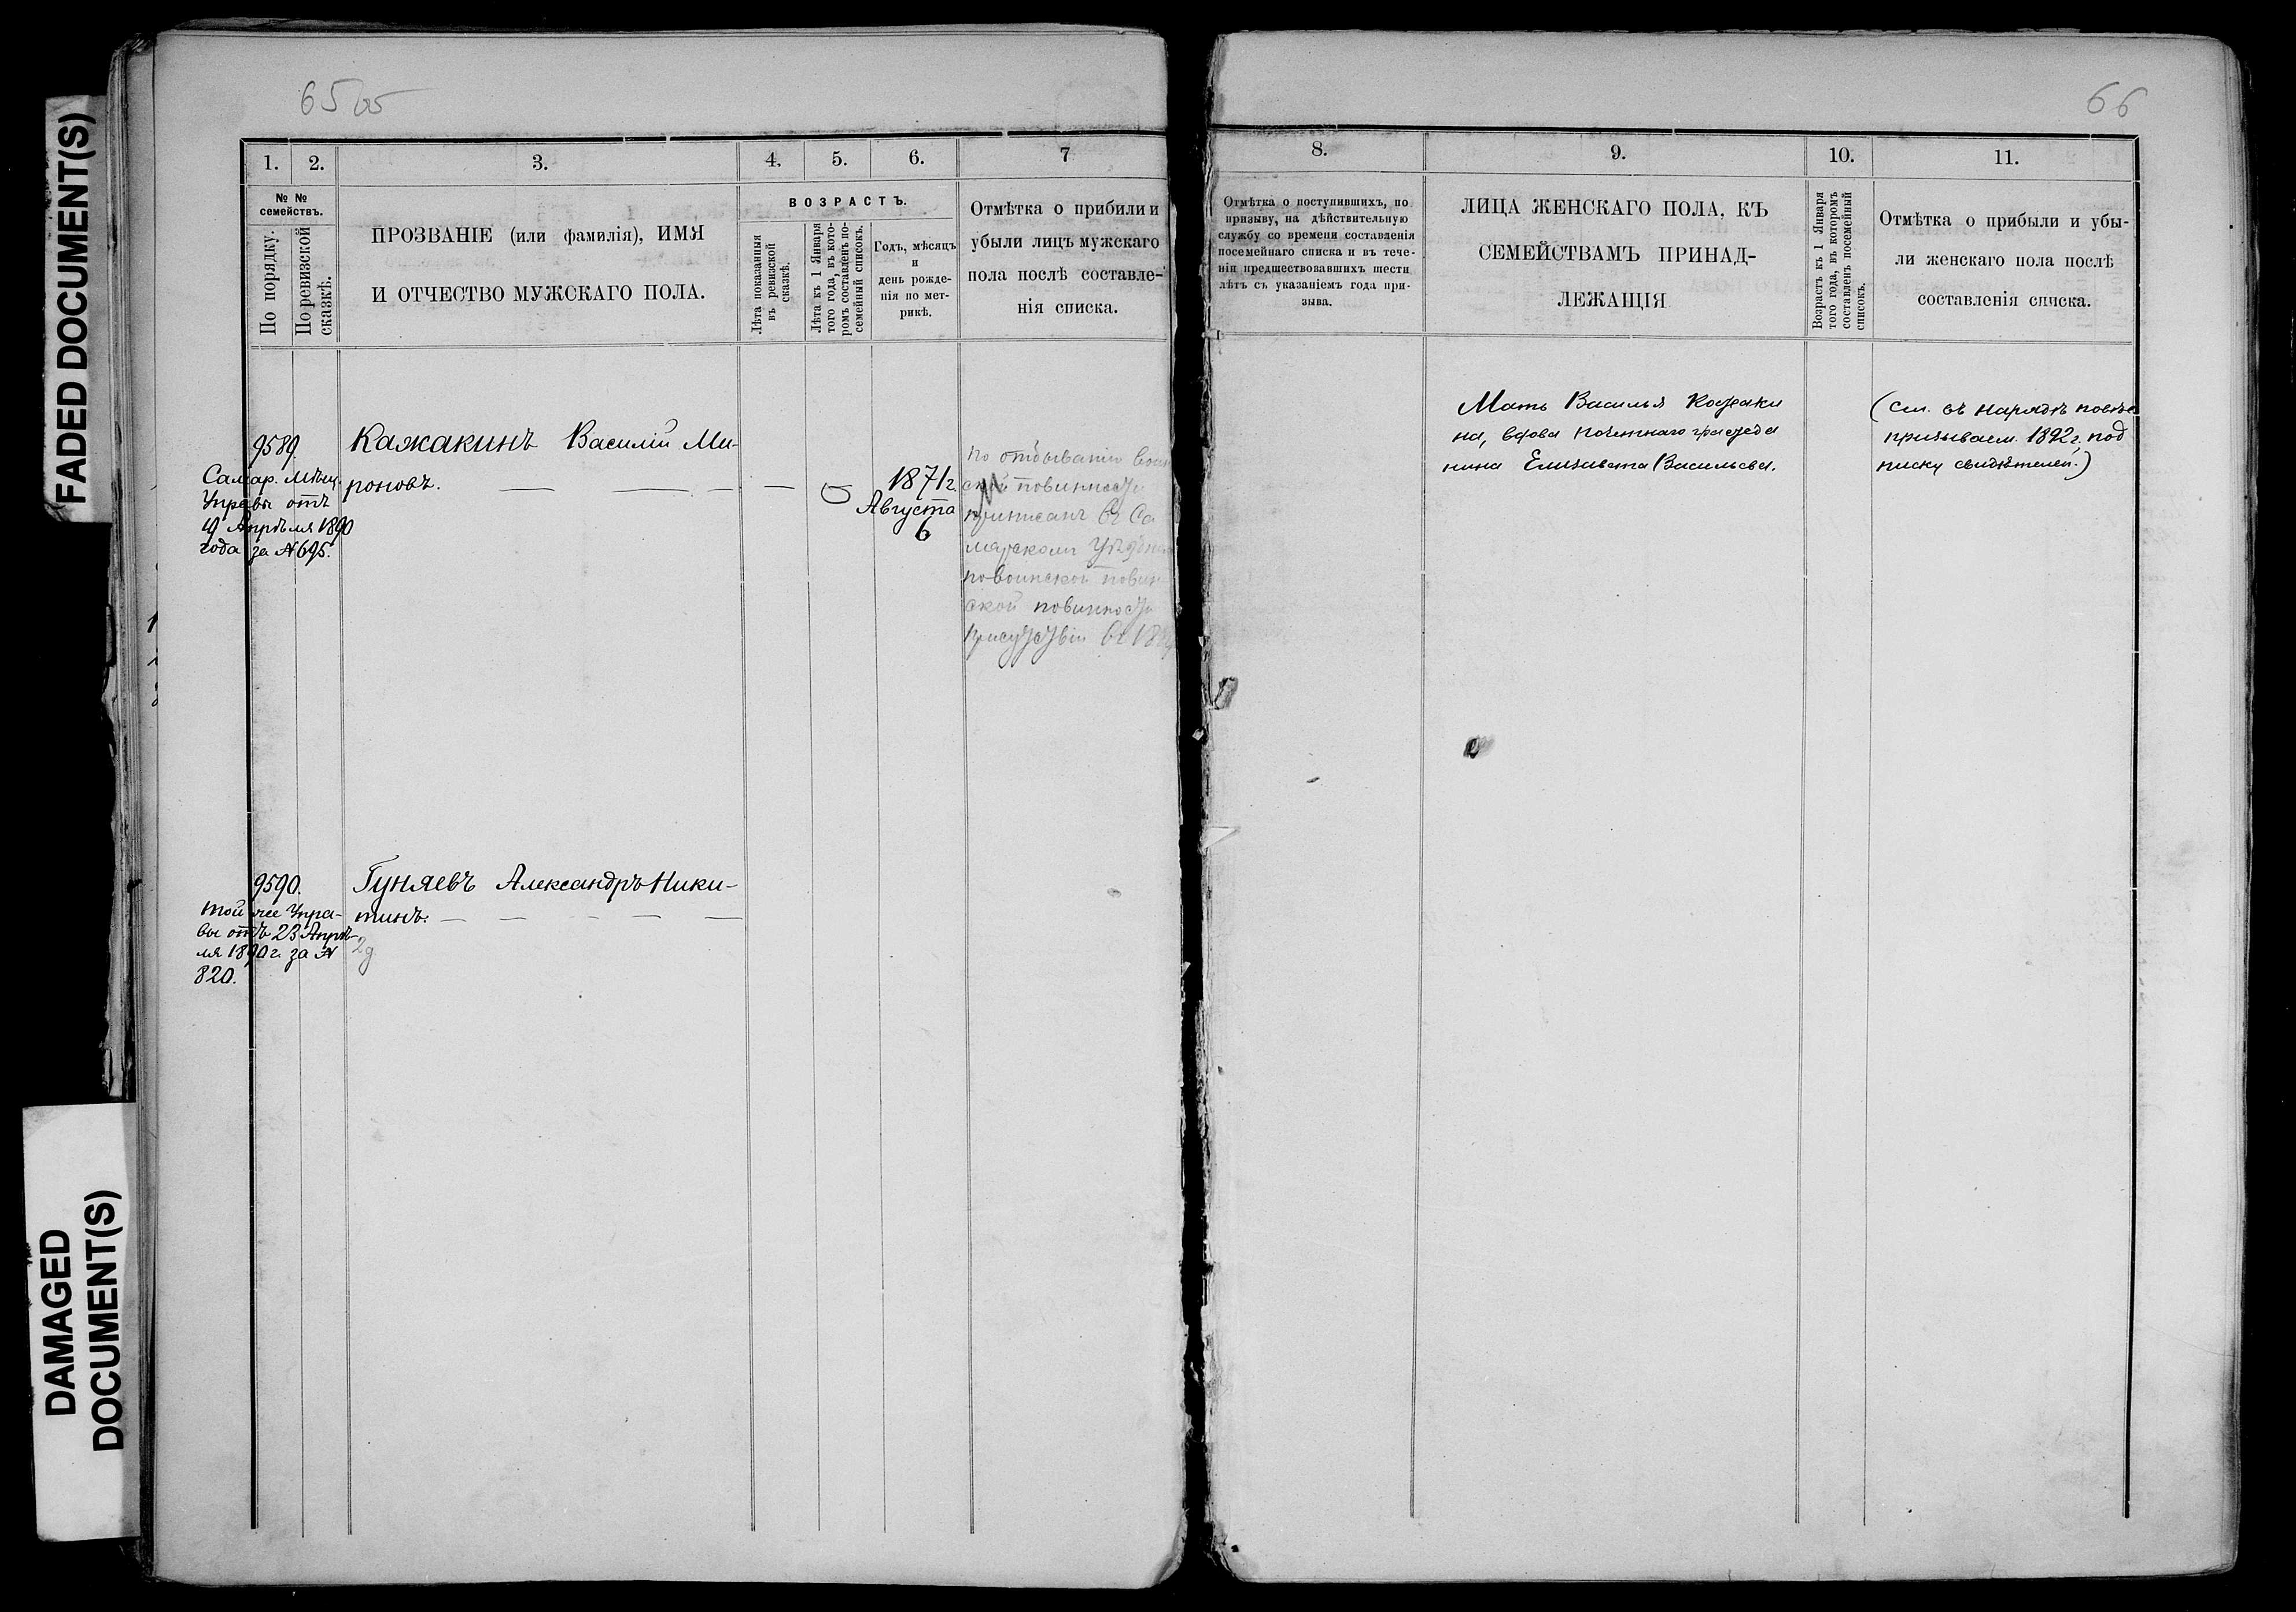 FADED DOCUMENT(S)
DAMAGED
DOCUMENT(S)
65 об
1. 2. 3. 4. 5. 6. 7
№ №
семействъ.
По порядку.
По ревизской
сказкѣ.
ПРОЗВАНІЕ (или фамилія), ИМЯ
И ОТЧЕСТВО МУЖСКАГО ПОЛА.
ВОЗРАСТЪ.
Лѣта показанныя
въ ревизской
сказкѣ.
Лѣта къ 1 Января
того года, въ кото-
ромъ составленъ по-
семейный списокъ.
Годъ, мѣсяцъ
и
день рожде-
нія по мет-
рикѣ.
Отмѣтка о прибыли и
убыли лицъ мужскаго
пола послѣ составле-
нія списка.
9589.
Самар. Мѣщ.
Управы отъ
19 Апрѣля 1890
года за № 695.
Кажакинъ Василій Ми-
роновъ.
1871 г.
Августа
6
По отбыванію воин
ской повинности
приписанъ въ Са
марскомъ Уѣздном
по воинской повин
ской повинности
Присутствіи въ 18
9590.
Той же Упра-
вы отъ 23 Апрѣ-
ля 1890 г. за №
820.
Гуняевъ Александръ Ники-
тинъ.
2 д
66
8. 9. 10. 11.
Отмѣтка о поступившихъ, по
призыву, на дѣйствительную
службу со времени составленія
посемейнаго списка и въ тече-
ніи предшествовавшихъ шести
лѣтъ съ указаніемъ года при-
зыва.
ЛИЦА ЖЕНСКАГО ПОЛА, КЪ
СЕМЕЙСТВАМЪ ПРИНАД-
ЛЕЖАЩІЯ
Возрастъ къ 1 Января
того года, въ которомъ
составленъ посемейный
списокъ.
Отмѣтка о прибыли и убы-
ли женскаго пола послѣ
составленія списка.
Мать Василья Кожаки
на, вдова почетнаго гражда
нина Елизавета Васильева.
(см. въ нарядѣ
призываем. 1892 г. под
писку свидѣтелей.)